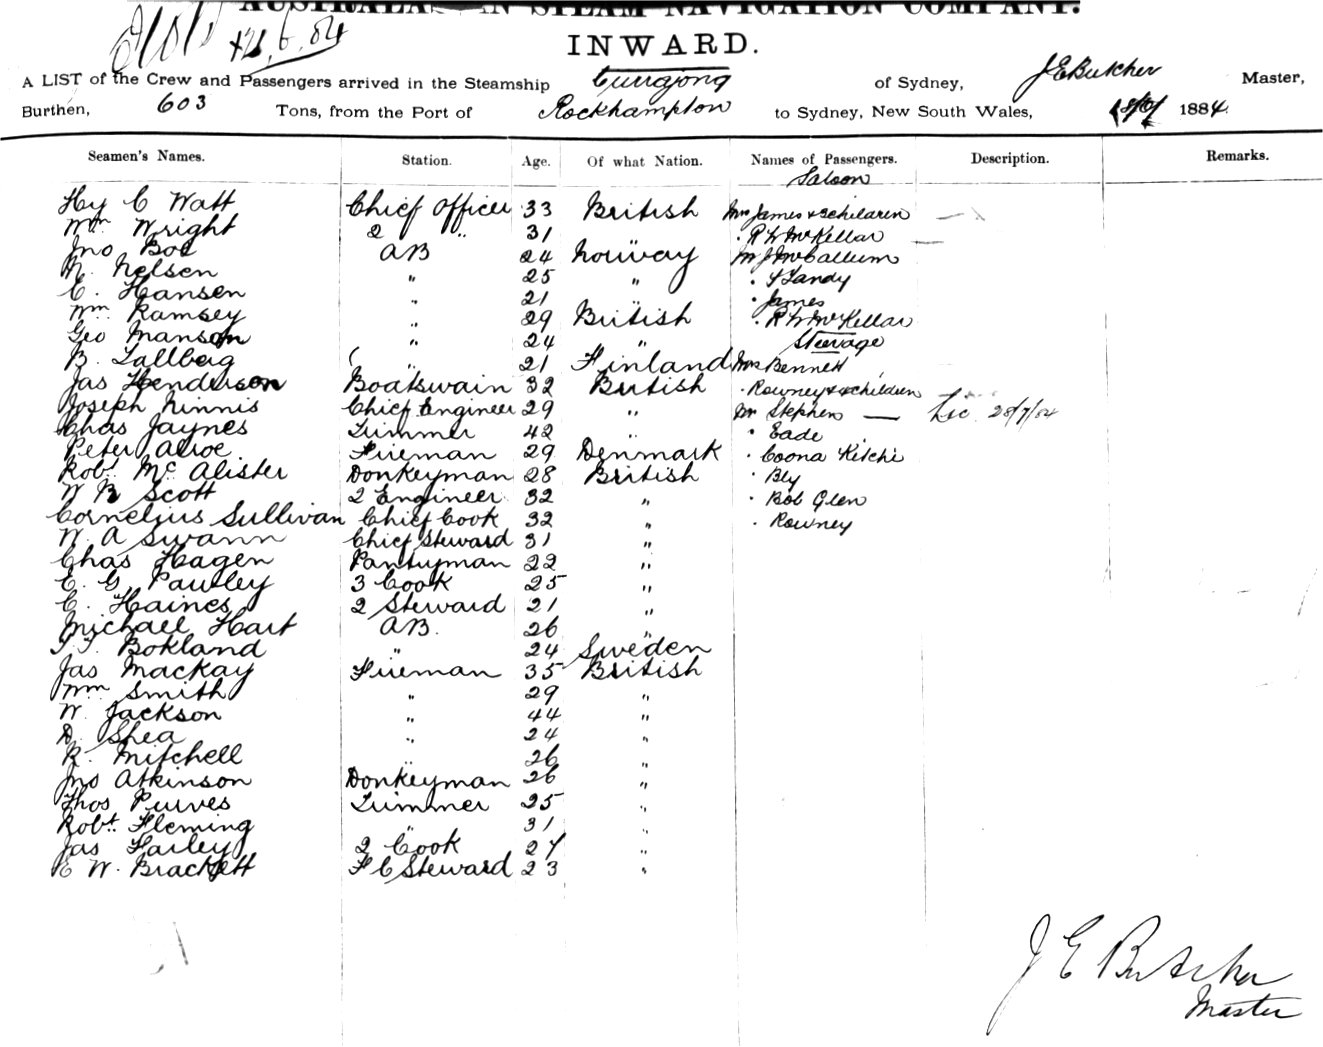 AUSTRALASIAN STEAM NAVIGATION COMPANY.
INWARD.
A LIST of the Crew and Passengers arrived in the Steamship Curragong of Sydney, J E Butcher Master,
Burthen, 603 Tons, from the Port of Rockhampton to Sydney, New South Wales, 1884
Seamen's Names. Station. Age. Of what Nation. Names of Passengers. Description. Remarks.
Saloon
Hy C Watt Chief Officer 33 British Mrs James & children —
Wm Wright 2 " 31 " R W McKellar —
Jno Boe AB 24 Norway Mr J McCallum
N. Nelsen " 25 " " Handy
C. Hansen " 21 " " James
Wm Ramsey " 29 British " R W McKellar
Geo Manson " 24 " Steerage
B. Tallberg " 21 Finland Mrs Bennett
Jas Henderson Boatswain 32 British " Rowney & children
Joseph Ninnis Chief Engineer 29 " Mr Stephen — Lic 28/7/84
Chas Jaynes Trimmer 42 " " Eade
Peter Alroe Fireman 29 Denmark " Coona Kitchi
Robt Mc Alister Donkeyman 28 British " Bly
W B Scott 2 Engineer 32 " " Bob Glen
Cornelius Sullivan Chief Cook 32 " " Rowney
W. A Swann Chief Steward 31 "
Chas Hagen Pantryman 22 "
E. G. Pawley 3 Cook 25 "
C. Haines 2 Steward 21 "
Michael Hart AB. 26 "
Bokland " 24 Sweden
Jas Mackay Fireman 35 British
Wm Smith " 29 "
W. Jackson " 44 "
D. Shea " 24 "
R. Mitchell " 26 "
Jno Atkinson Donkeyman 26 "
Thos Purves Trimmer 25 "
Robt. Fleming " 31 "
Jas Farley 2 Cook 27 "
E W. Brackett F C Steward 23 "
J E Butcher
Master